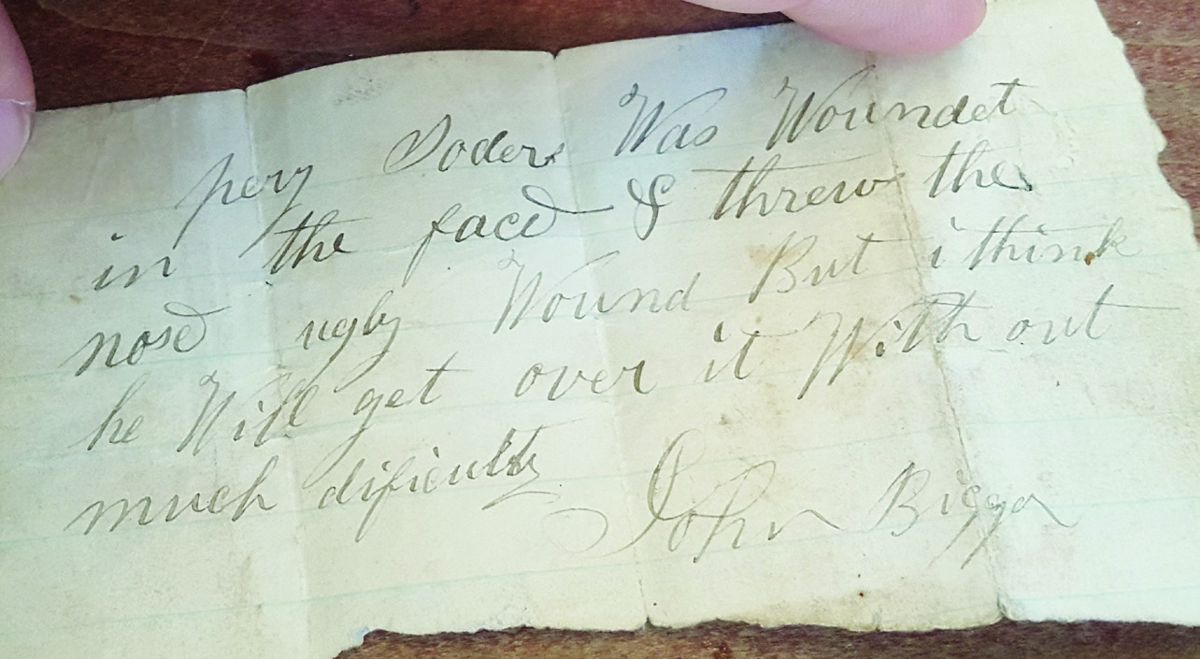 pery Soders Was Woundet
in the face & threw the
nose ugly Wound But i think
he Will get over it With out
much dificulty
John Biggar